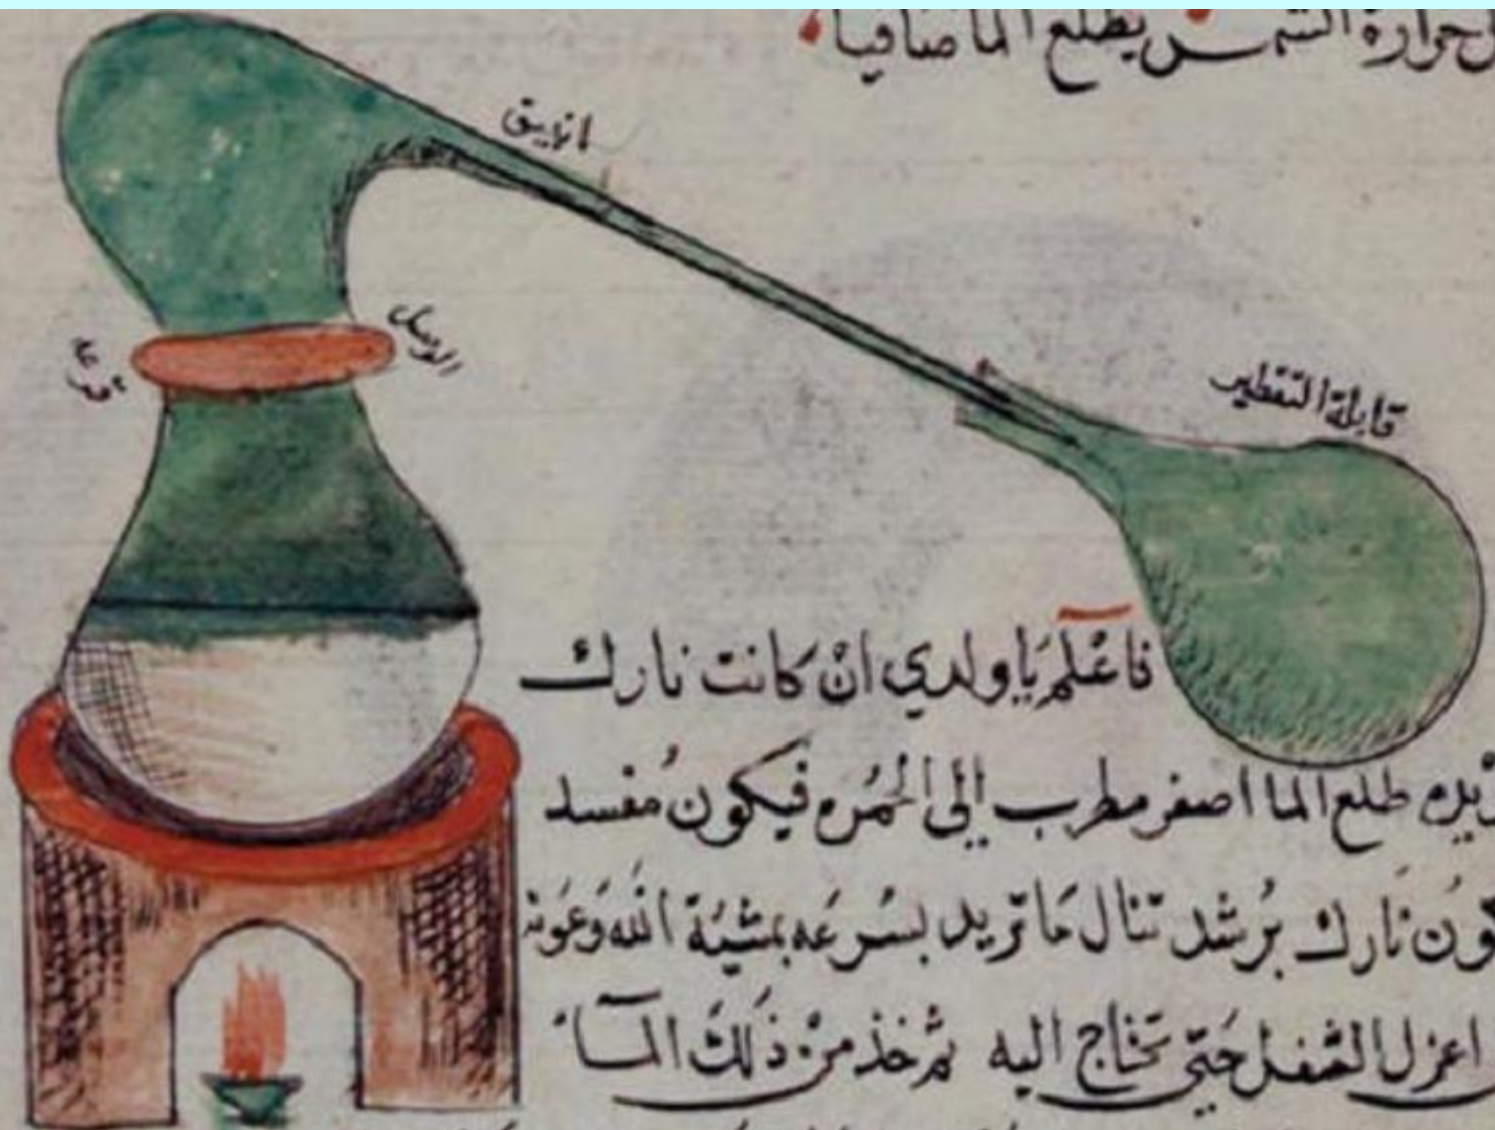 حرارة الشمس يطلع الما صافيا
انبيق
الوصل
قرعه
قابلة التقطير
فاعْلم يَا ولدي انْ كانت نارك
طلع الما اصفر مطرب الي الحُمره فيكون مُفسد
نَارك بُرشد تنال مَا تريد بسُرعَه بمشيّة الله وَعَونه
اعزل الثفل حَتي تحتاج اليه ثم خذ منْ ذَلكَ المآء